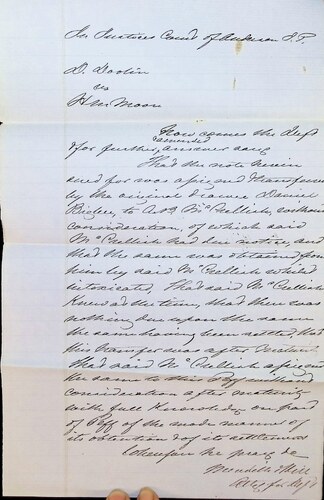 In Justices Court of Anderson J.P.
D.
vs
H. M. Moon
Now comes the Deft
amended
& for further answer says
That the note herein
sued for was assigned & transferred
by the original Daniel
to McCullick, without
consideration, of which said
McCullick had due notice, and
that the same was obtained from
him by said McCullick whilst
intoxicated, That said McCullick
Knew at the time, that there was
nothing due upon the same
the same having been settled, that
this transfer was after maturity
That said McCullick assigned
the same to this Plff without
consideration after maturity
with full Knowledge on part
of Plff of the manner of
its obtention & of its settlement
Wherefore he prays &c
Atty for Deft